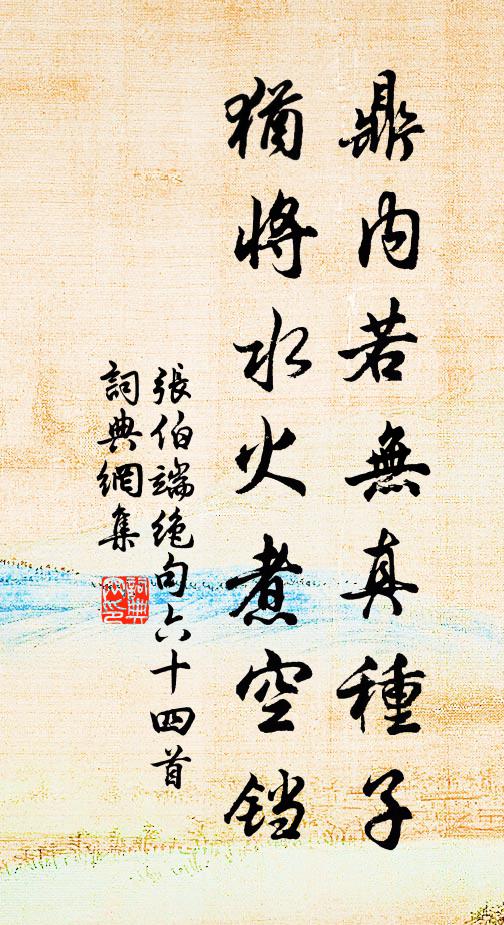 鼎内若無真種子
猶將水火煮空铛
張伯端絶句六十四首
詞典網集